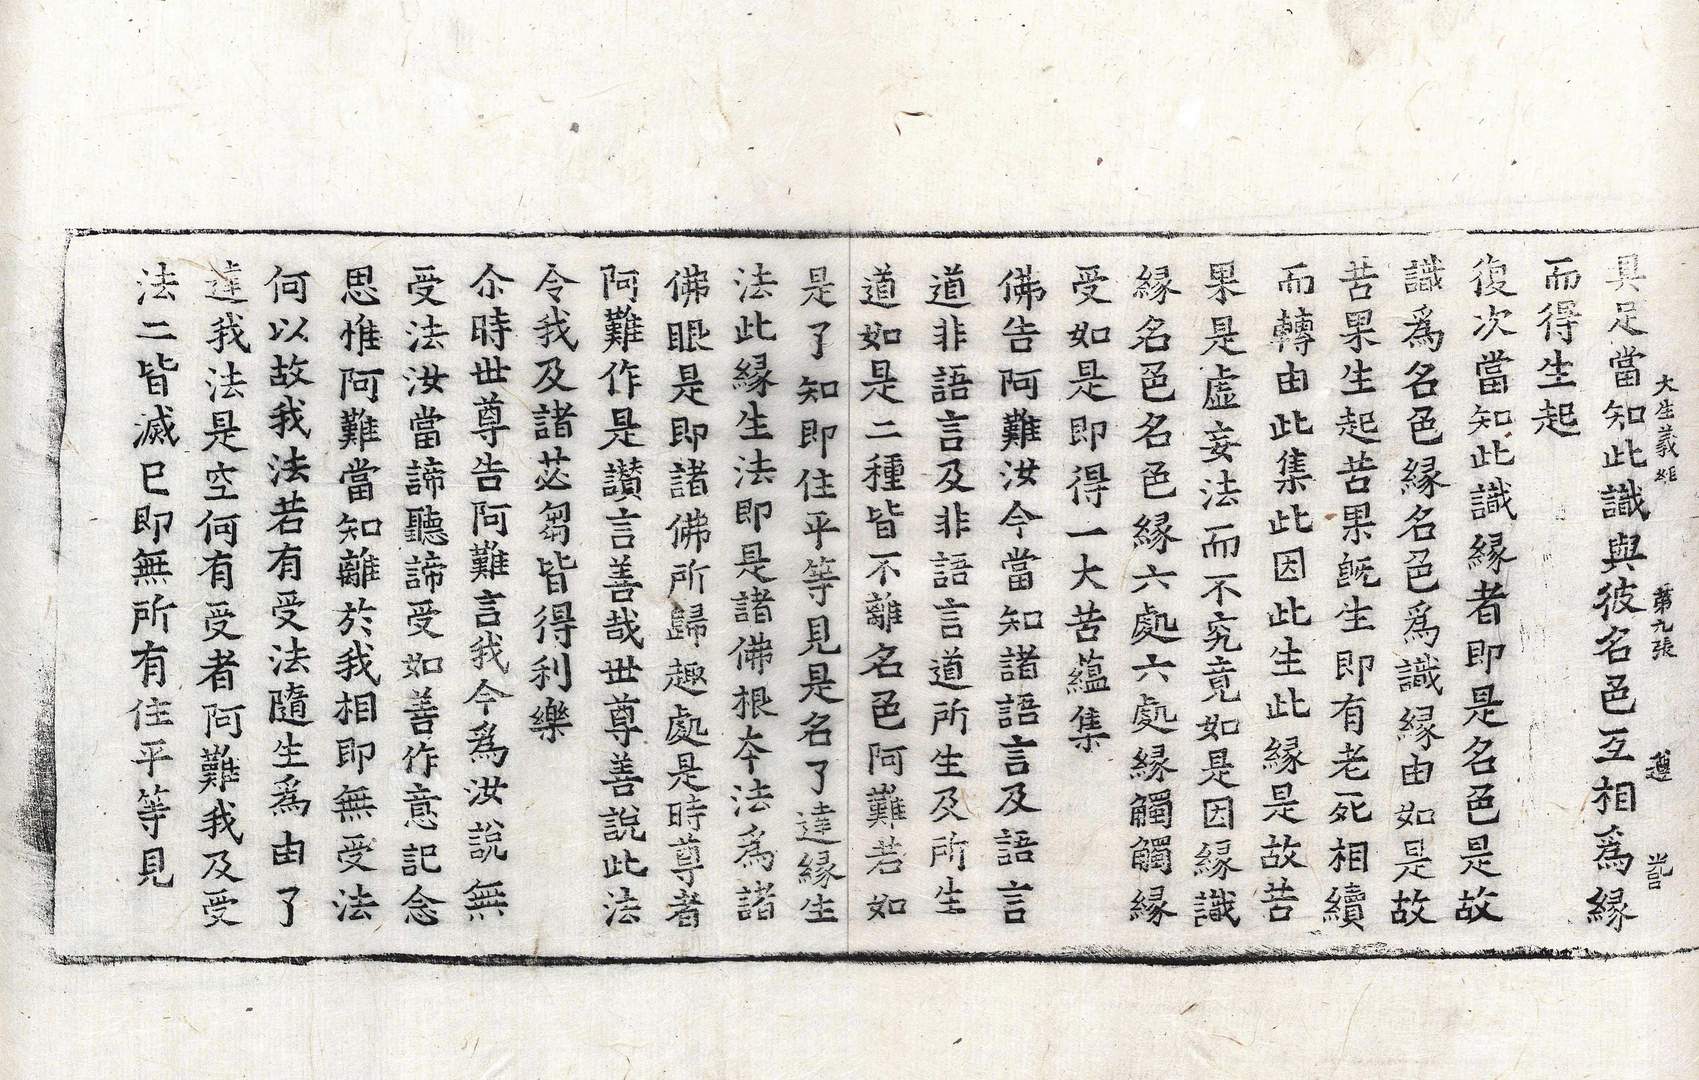 大生義経　第九張　遵
具足當知此識與彼名色互相爲緣
而得生起
復次當知此識緣者即是名色是故
識爲名色緣名色爲識緣由如是故
苦果生起苦果旣生即有老死相續
而轉由此集此因此生此緣是故苦
果是虛妄法而不究竟如是因緣識
緣名色名色緣六處六處緣觸觸緣
受如是即得一大苦蘊集
佛告阿難汝今當知諸語言及語言
道非語言及非語言道所生及所生
道如是二種皆不離名色阿難若如
是了知即住平等見是名了達緣生
法此緣生法即是諸佛根夲法爲諸
佛眼是即諸佛所歸趣處是時尊者
阿難作是讃言善哉世尊善說此法
令我及諸苾芻皆得利樂
尒時世尊告阿難言我今爲汝說無
受法汝當諦聽諦受如善作意記念
思惟阿難當知離於我相即無受法
何以故我法若有受法隨生爲由了
達我法是空何有受者阿難我及受
法二皆滅巳即無所有住平等見